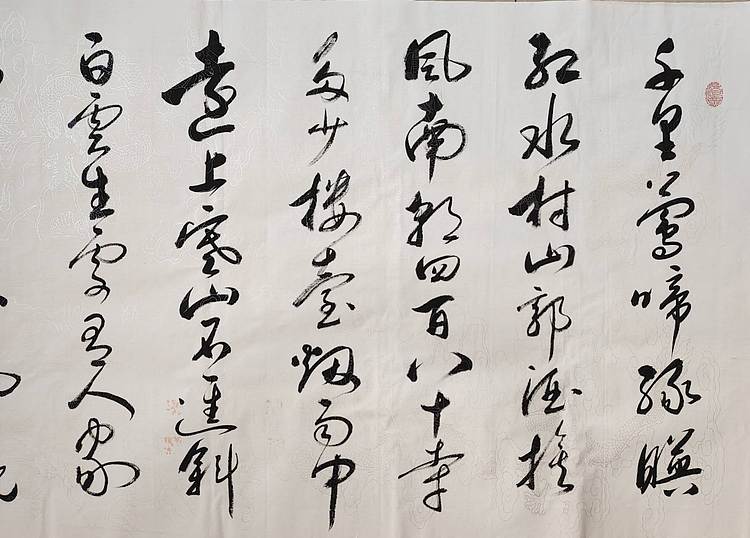 千里鶯啼綠暎
紅水村山郭酒旗
風南朝四百八十寺
多少樓臺烟雨中
遠上寒山石逕斜
白雲生處有人家